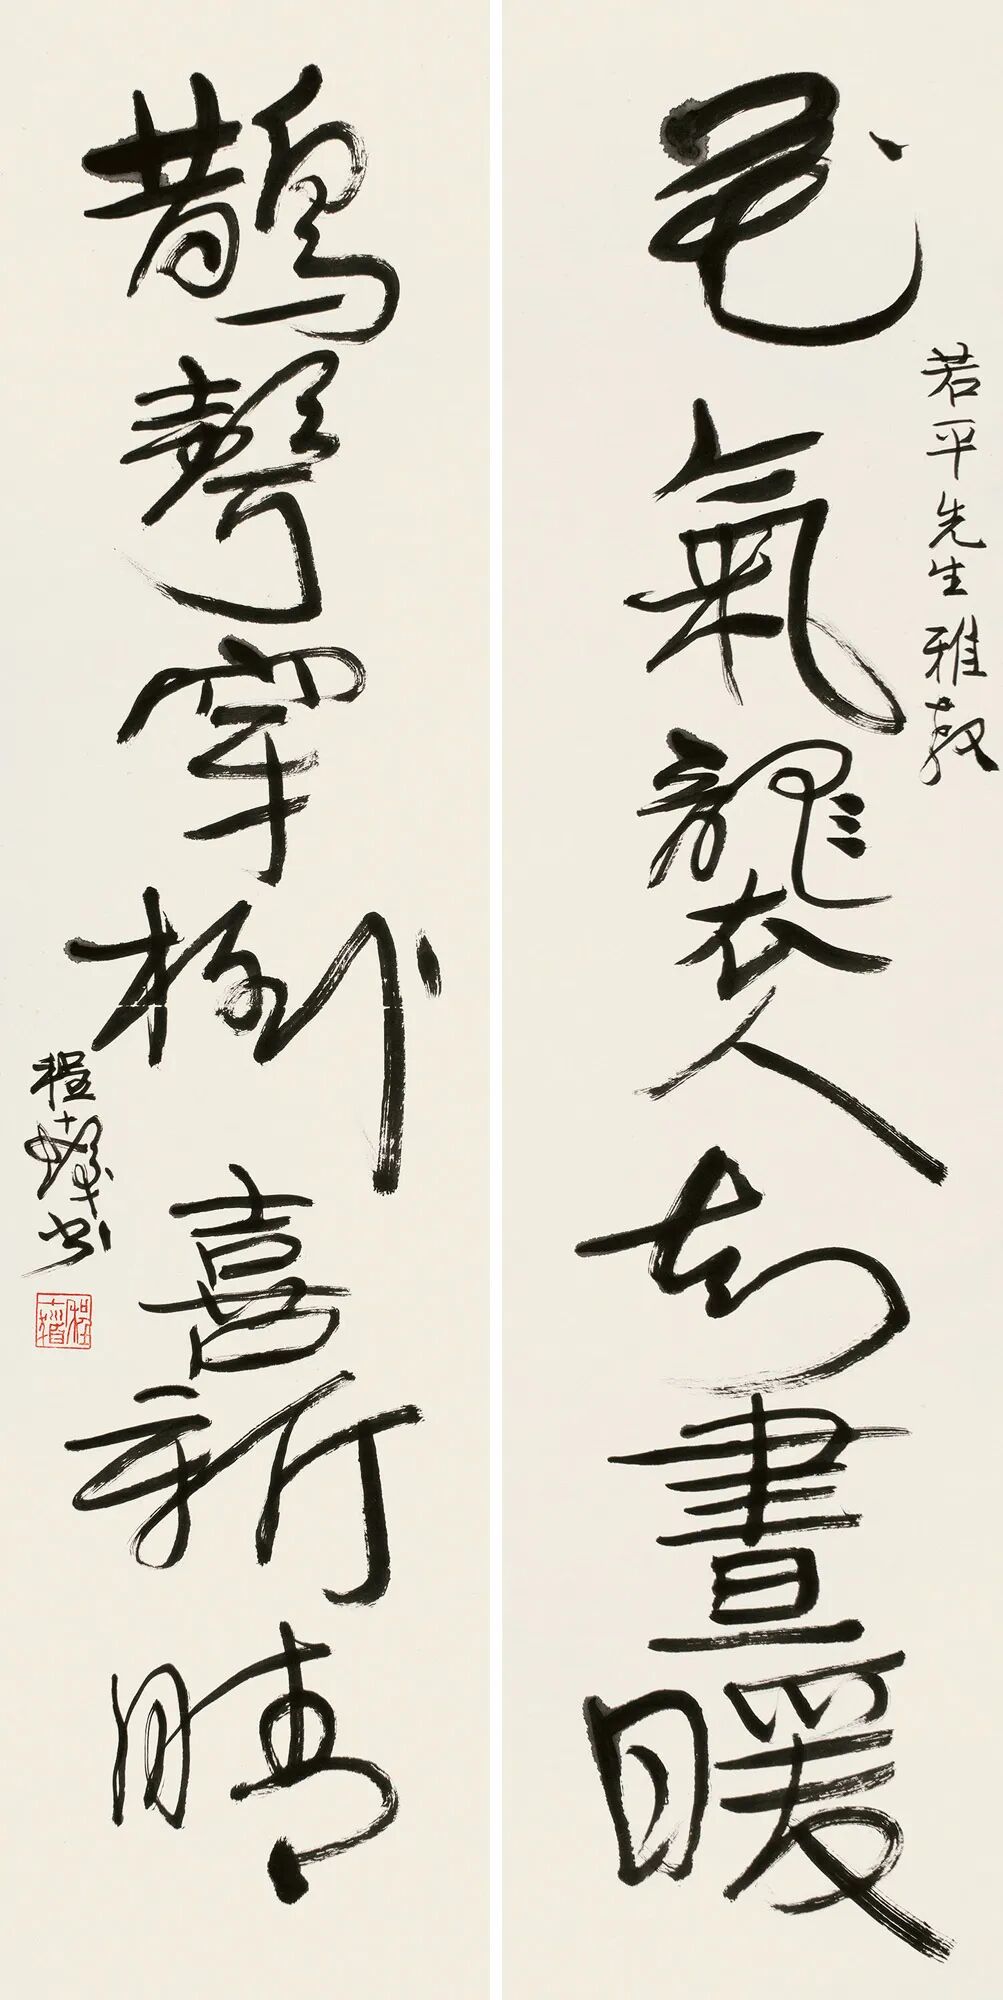 花氣襲人知晝暖
若平先生雅教
鵲聲穿樹喜新晴
程十髮書